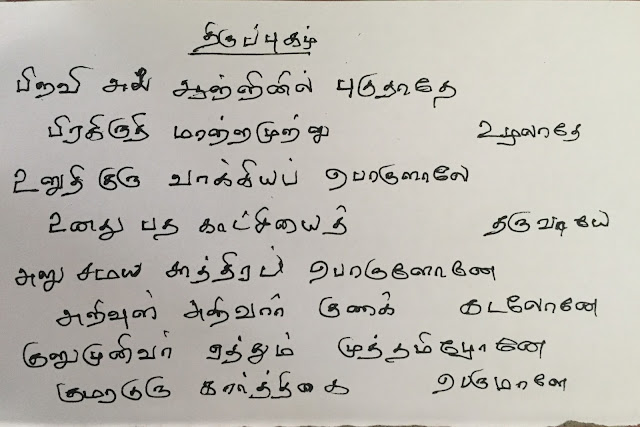 திருப்புகழ்
பிறவி அலை ஆற்றினில் புகுதாதே
பிரகிருதி மாற்றமுற்று உழலாதே
உறுதி குரு வாக்கியப் பொருளாலே
உனது பத காட்சியைத் தருவாயே
அறு சமய சாத்திரப் பொருளோனே
அறிவுள் அறிவார் குணக் கடலோனே
குறுமுனிவர் ஏத்தும் முத்தமிழோனே
குமரகுரு கார்த்திகை பெருமாளே